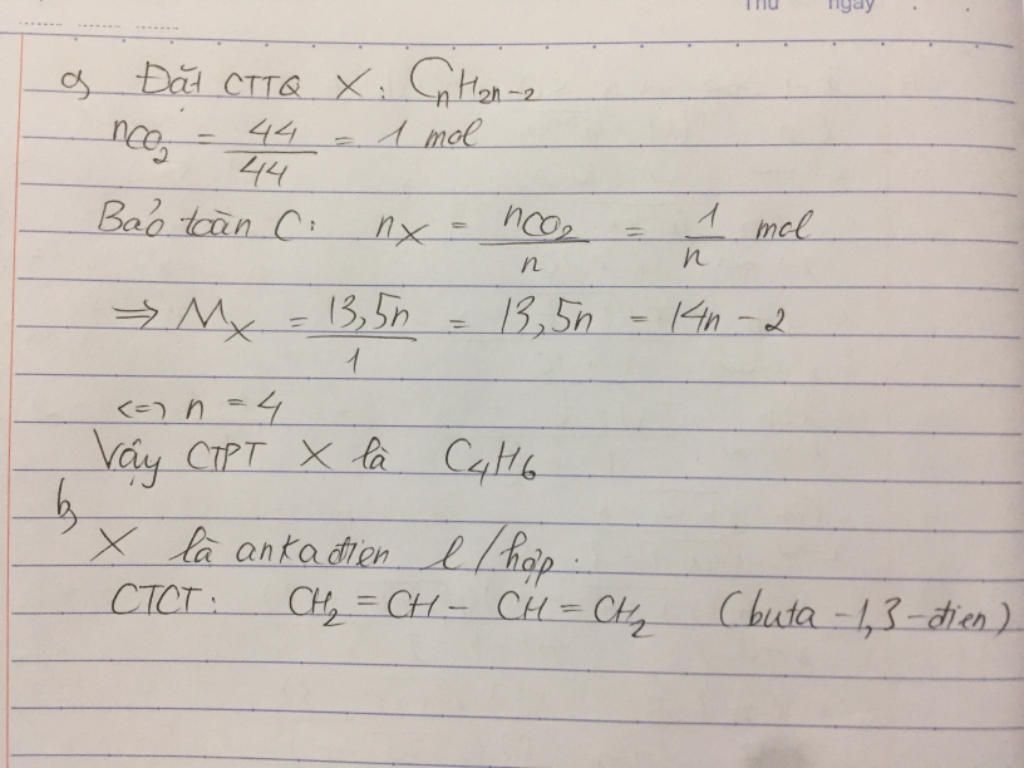 Thứ ngày
a, Đặt CTTQ X: CnH2n-2
nCO2 = 44/44 = 1 mol
Bảo toàn C: nX = nCO2/n = 1/n mol
=> MX = 13,5n/1 = 13,5n = 14n - 2
<=> n = 4
Vậy CTPT X là C4H6
b,
X là ankađien l/hợp.
CTCT: CH2 = CH - CH = CH2 (buta -1,3-đien)